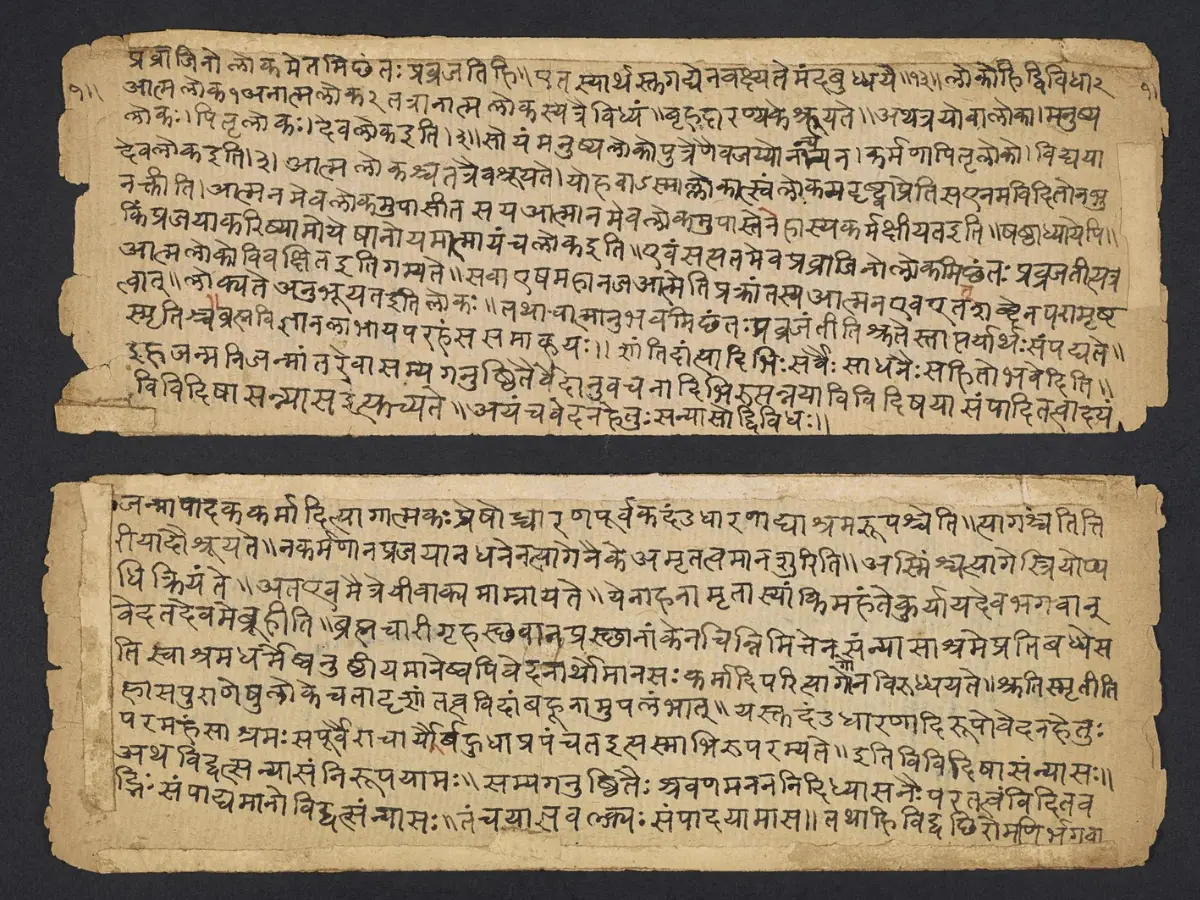 प्रव्राजिनो लोकमेतमिछंतः प्रव्रजंतिहि॥ एतस्यार्थस्तुगद्येनवक्ष्यते मंदबुध्यये॥१३॥ लोकोहिद्विविधार
१॥ आत्मलोक१अनात्मलोक२ तत्रानात्मलोकस्यत्रैविध्यं॥ बृहदारण्यकेश्रूयते॥ अथत्रयोवालोका। मनुष्य १॥
लोकः। पितृलोकः। देवलोकइति।३॥ सोयं मनुष्यलोकोपुत्रेणैवजय्योनान्येन। कर्मणापितृलोको। विद्यया
देवलोकइति।३। आत्मलोकश्चतत्रैवश्रूयते। योहवाऽस्माल्लोकात्स्वंलोकमदृष्ट्वाप्रैति सएनमविदितोनभु
नक्तीति। आत्मनमेवलोकमुपासीत सयआत्मानमेवलोकमुपास्तेनहास्यकर्मक्षीयतइति॥ षष्ठाध्यायेपि॥
किंप्रजयाकरिष्यामोयेषांनोयमात्मायंचलोकइति॥ एवंसत्यतमेवप्रव्राजिनोलोकमिछंतः प्रव्रजंतीत्यत्र
आत्मलोकोविवक्षितइतिगम्यते॥ सवाएषमहानजआत्मेतिप्रक्रांतस्यआत्मनएवएतछब्देनपरामृष्ट
त्वात्॥ लोक्यते अनुभूयतइतिलोकः॥ तथाचात्मानुभवमिछंतः प्रव्रजंतीतिश्रुतेस्तात्पर्यार्थः संपद्यते॥
स्मृतिश्चब्रह्मविज्ञानलाभायपरहंससमाह्वयः॥ शांतिदांत्यादिभिः सर्वैः साधनैः सहितोभवेदिति॥
इहजन्मनिजन्मांतरेवासम्यगनुष्ठितैर्वेदानुवचनादिभिरुत्पन्नयाविविदिषयासंपादितत्वादयं
विविदिषासन्न्यासइत्युच्यते॥ अयंचवेदनहेतुः सन्यासोद्विविधः॥
जन्मापादककर्मादित्यागात्मकः प्रैषोच्चारणपूर्वकदंडधारणाद्याश्रमरूपश्चेति॥ त्यागश्चतैत्ति
रीयादौश्रूयते॥ नकर्मणानप्रजयानधनेनत्यागेनैकेअमृतत्वमानशुरिति॥ अस्मिंश्चत्यागेस्त्रियोप्य
धिक्रियंते॥ अतएवमैत्रेयीवाक्यमाम्नायते॥ येनाहंनामृतास्यांकिमहंतेकुर्यांयदेवभगवान्
वेदतदेवमेब्रूहीति॥ ब्रह्मचारीगृहस्छवानप्रस्छानांकेनचिन्निमित्तेनसंन्यासाश्रमेप्रतिबध्येस
तिस्वाश्रमधर्मेष्वनुष्ठीयमानेष्वपिवेदनार्थोमानसः कर्मादिपरित्यागोनविरुध्ययते॥ श्रुतिस्मृतीति
हासपुराणेषुलोकेचतादृशांतत्वविदांबहूनामुपलंभात्॥ यस्तुदंडधारणादिरूपोवेदनहेतुः
परमहंसाश्रमः सपूर्वैराचार्यैर्बहुधाप्रपंचतइत्यस्माभिरुपरम्यते॥ इतिविविदिषासंन्यासः॥
अथविद्वत्सन्यासंनिरूपयामः॥ सम्यगनुष्ठितैः श्रवणमनननिदिध्यासनैः परतत्वंविदितव
द्भिः संपाद्यमानोविद्वत्संन्यासः॥ तंचयाज्ञवल्क्यः संपादयामास॥ तथाहिविद्वछिरोमणिर्भगवा